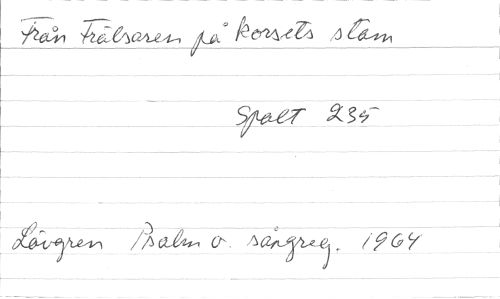 Från Frälsaren på korsets stam
Spalt 235
Lövgren Psalm o. sångreg. 1964